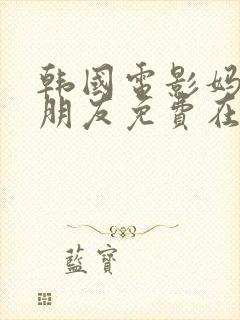 韩国电影妈
朋友免费在
蓝宝